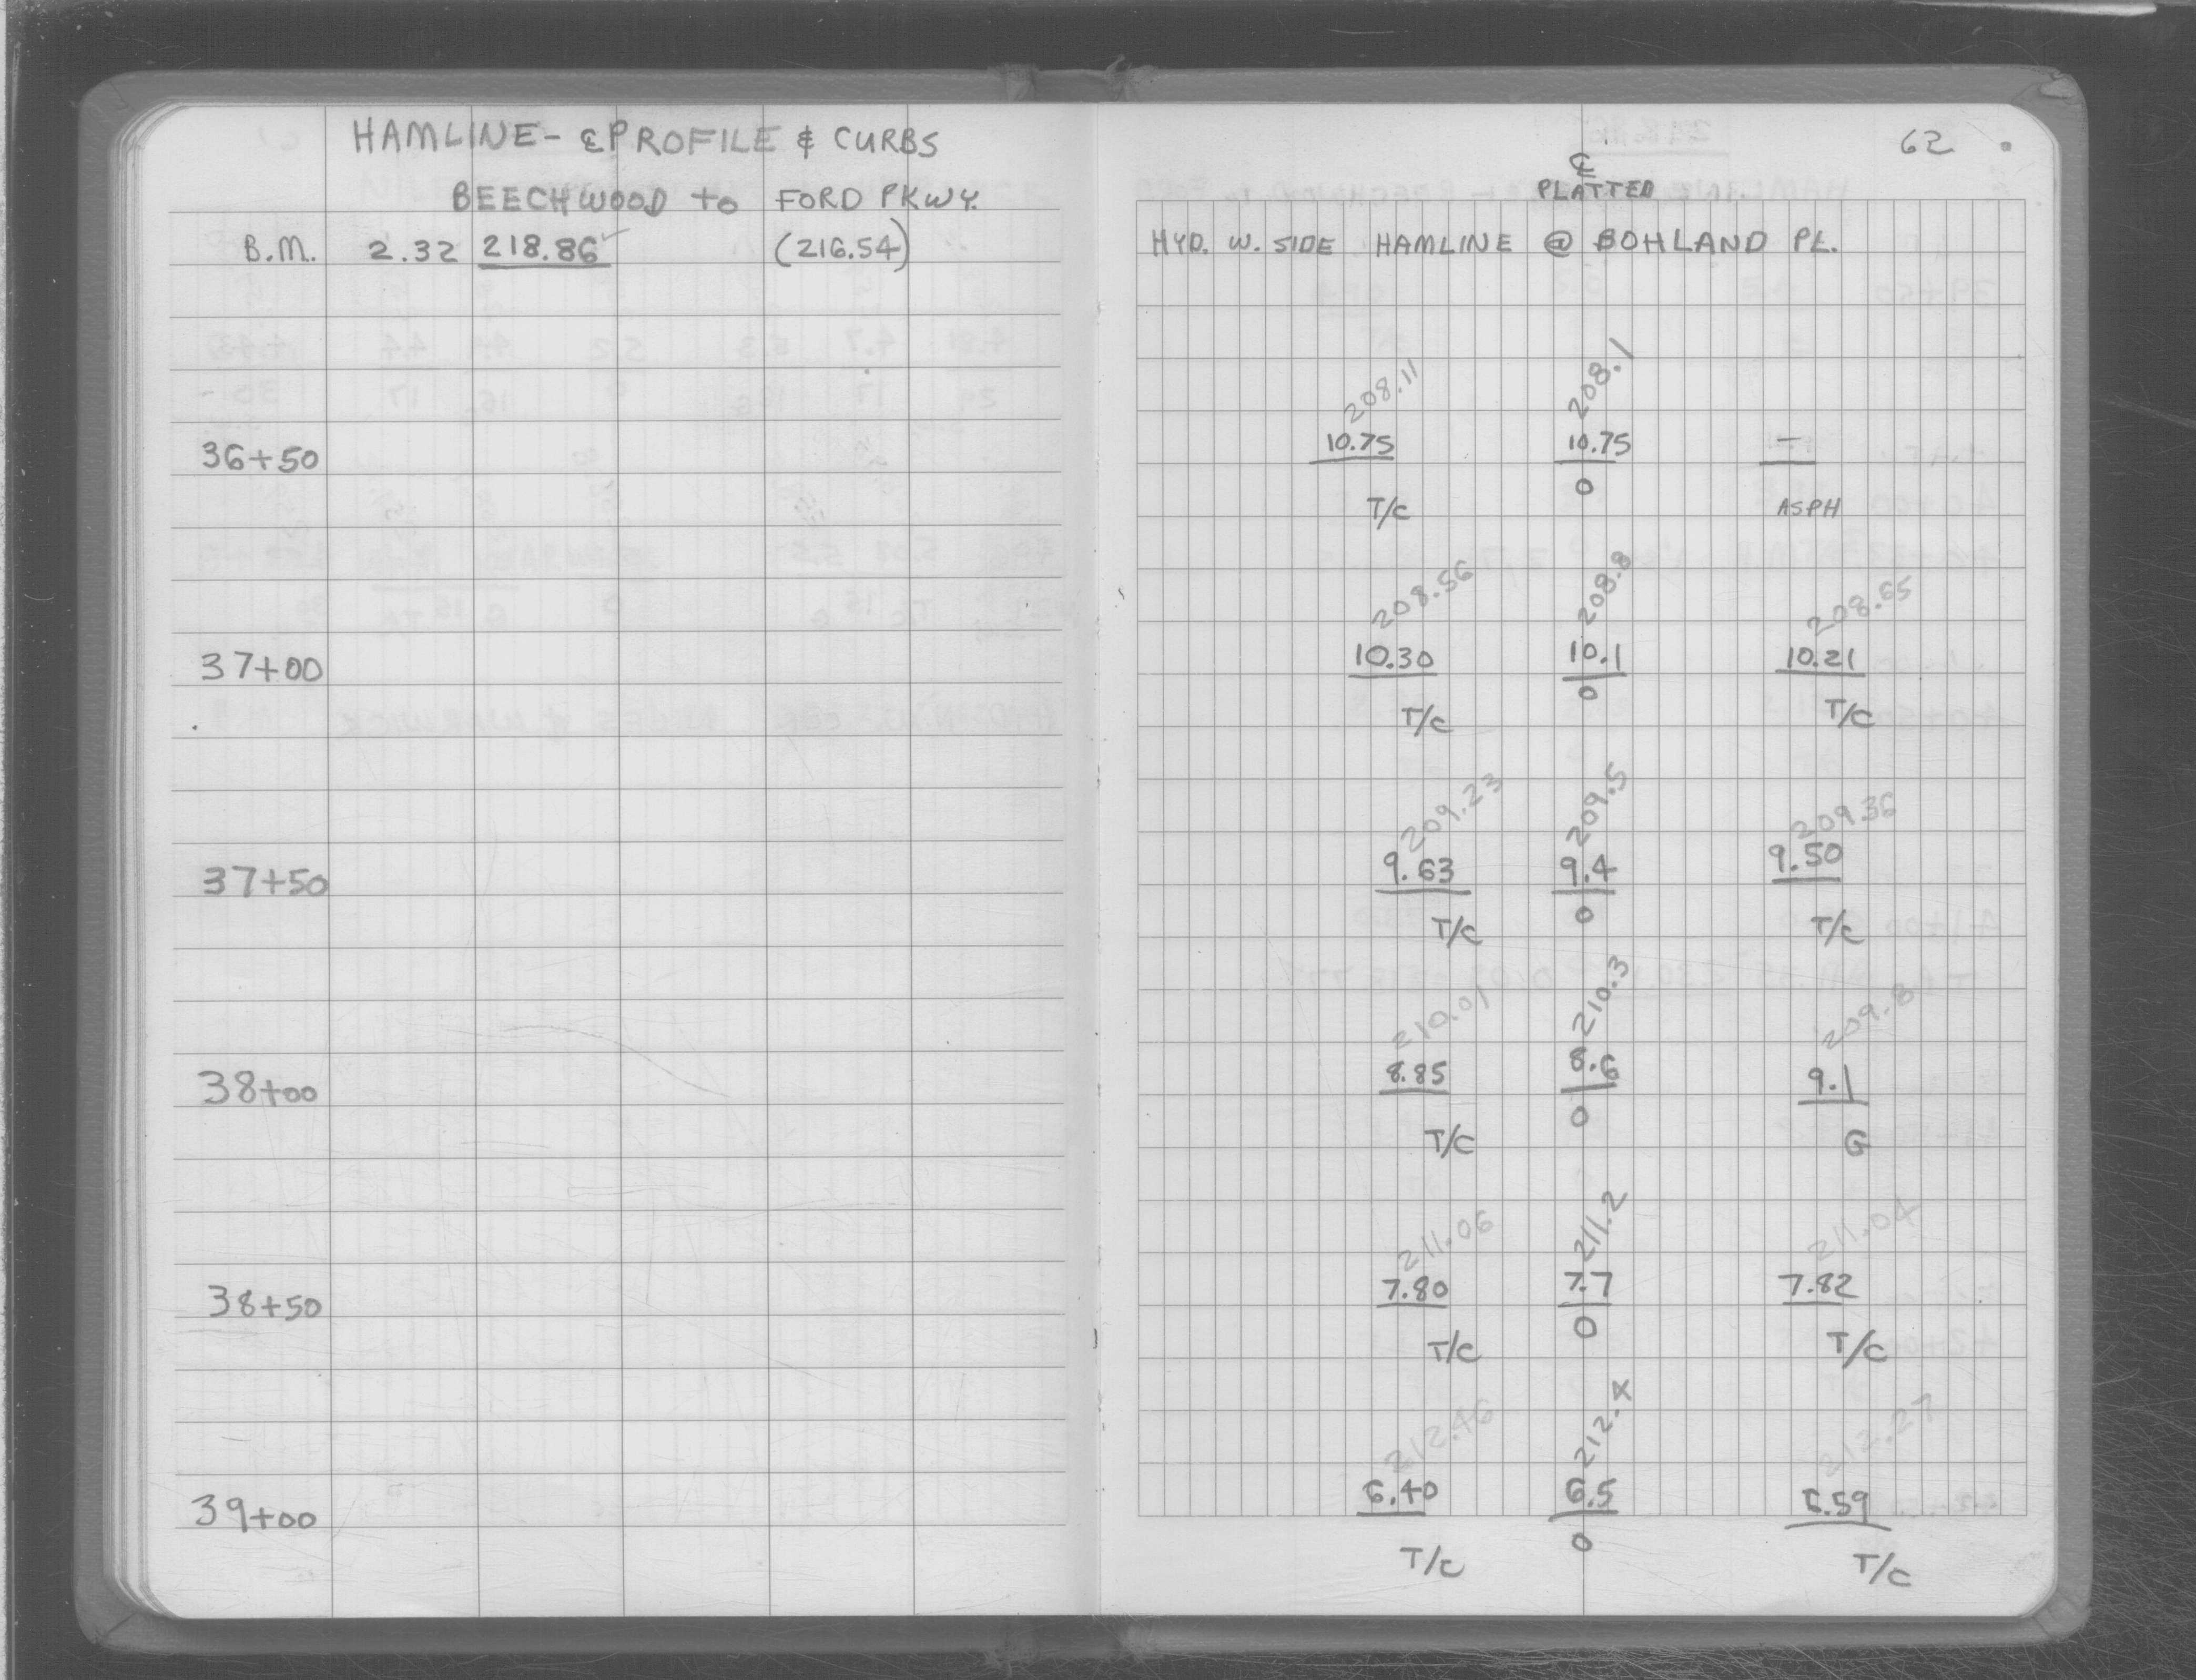 HAMLINE - ℄ PROFILE & CURBS
BEECHWOOD to FORD PKWY.
B.M. 2.32 218.86 ✓ (216.54)
62
℄
PLATTED
HYD. W. SIDE HAMLINE @ BOHLAND PL.
208.11 208.1
36+50 10.75 10.75 —
0
T/C ASPH
208.56 208.8 208.65
37+00 10.30 10.1 10.21
0
T/C T/C
209.23 209.5 209.36
37+50 9.63 9.4 9.50
0
T/C T/C
210.01 210.3 209.8
38+00 8.85 8.6 9.1
0
T/C G
211.06 211.2 211.04
38+50 7.80 7.7 7.82
0
T/C T/C
212.46 212.4 212.27
39+00 6.40 6.5 6.59
0
T/C T/C